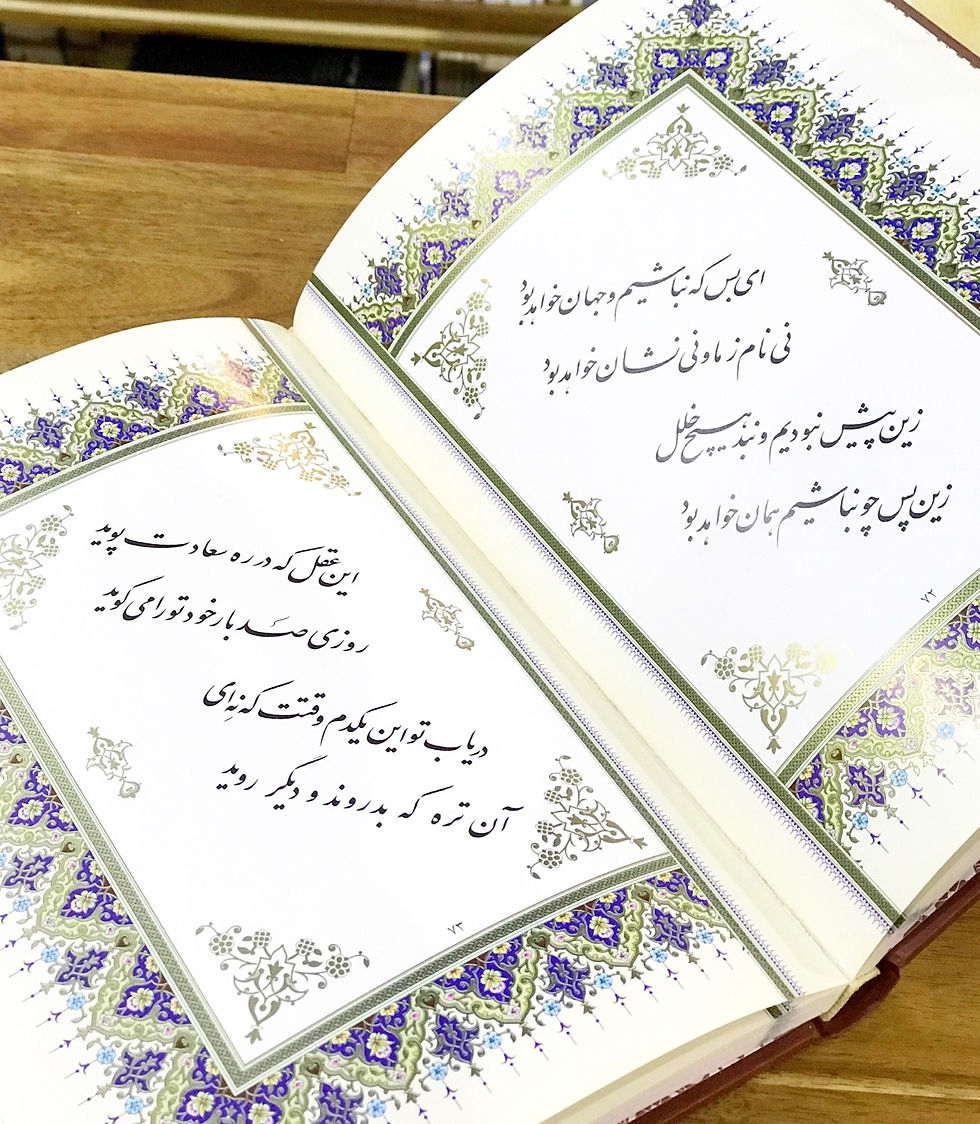 ای بس که نباشیم و جهان خواهد بود
نی نام ز ما و نی نشان خواهد بود
زین پیش نبودیم و نبد هیچ خلل
زین پس چو نباشیم همان خواهد بود
۷۲
این عقل که در ره سعادت پوید
روزی صد بار خود تو را می گوید
دریاب تو این یکدم وقتت که نه‌ای
آن تره که بدروند و دیگر روید
۷۳